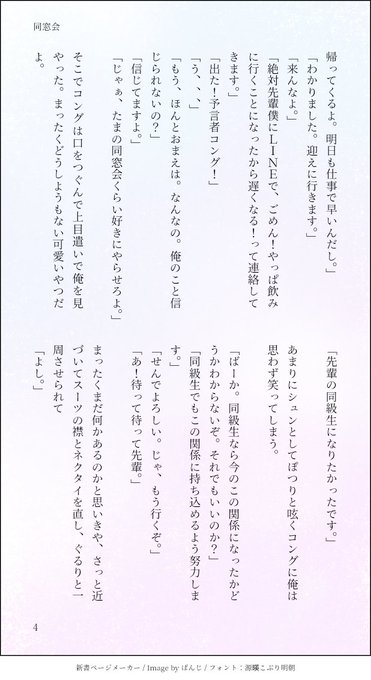 同窓会
帰ってくるよ。明日も仕事で早いんだし。」
「わかりました。迎えに行きます。」
「来んなよ。」
「絶対先輩僕にＬＩＮＥで、ごめん！やっぱ飲み
に行くことになったから遅くなる！って連絡して
きます。」
「出た！予言者コング！」
「う、、、」
「もう、ほんとおまえは。なんなの。俺のこと信
じられないの？」
「信じてますよ。」
「じゃぁ、たまの同窓会くらい好きにやらせろよ。」
そこでコングは口をつぐんで上目遣いで俺を見
やった。まったくどうしようもない可愛いやつだ
よ。
「先輩の同級生になりたかったです。」
あまりにシュンとしてぽつりと呟くコングに俺は
思わず笑ってしまう。
「ばーか。同級生なら今のこの関係になったかど
うかわからないぞ。それでもいいのか？」
「同級生でもこの関係に持ち込めるよう努力しま
す。」
「せんでよろしい。じゃ、もう行くぞ。」
「あ！待って待って先輩。」
まったくまだ何かあるのかと思いきや、さっと近
づいてスーツの襟とネクタイを直し、ぐるりと一
周させられて
「よし。」
4
新書ページメーカー / Image by ぱんじ / フォント：源暎こぶり明朝